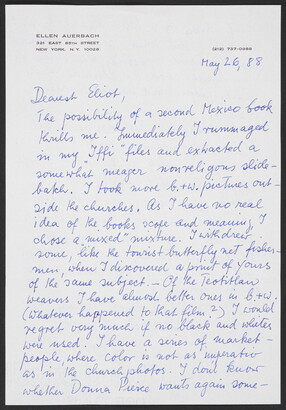 ELLEN AUERBACH
321 EAST 85TH STREET
NEW YORK, N.Y. 10028
(212) 737-0266
May 26, 88
Dearest Eliot,
The possibility of a second Mexico book
thrills me. Immediately I rummaged
in my "Iffi" files and extracted a
somewhat meager nonreligous slide-
batch. I took more b.+w. pictures out-
side the churches. As I have no real
idea of the books scope and meaning, I
chose a "mixed" mixture. I withdrew
some, like the tourist-butterfly net fisher-
men, when I discovered a print of yours
of the same subject. – Of the Teotitlan
weavers I have almost better ones in b.+w.
(Whatever happened to that film?) I would
regret very much if no black and whites
were used. I have a series of market-
people, where color is not as imperativ
as in the church photos. I dont know
whether Donna Pierce wants again some-